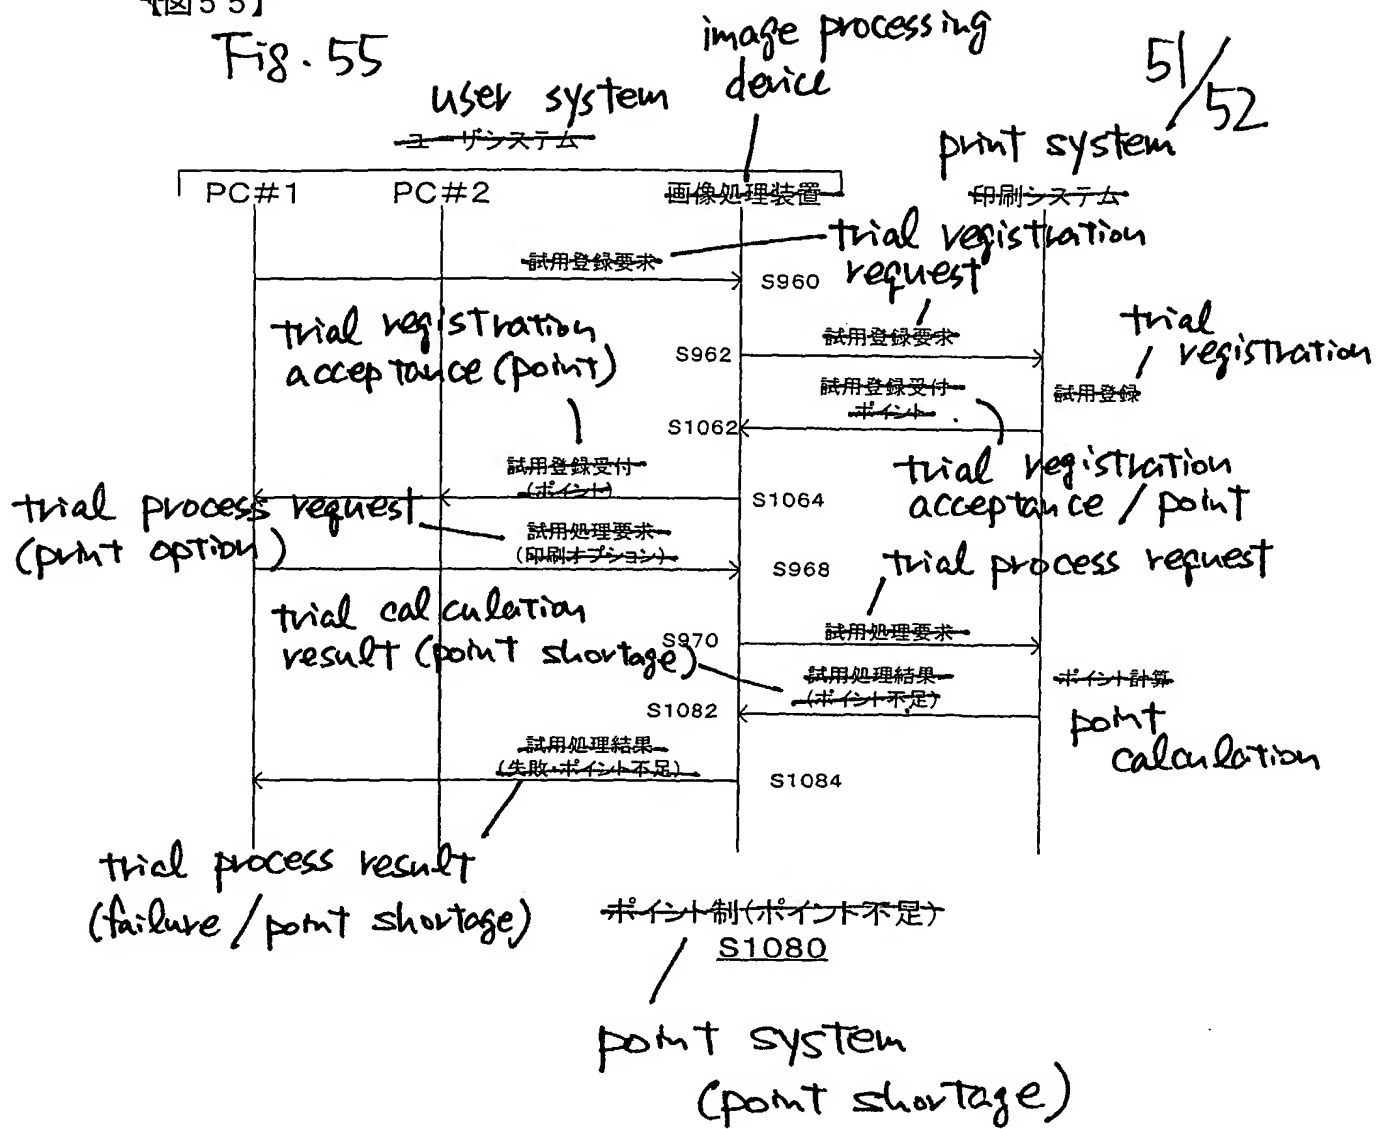 【図55】
Fig. 55
51/52
image processing
device
user system
ユーザシステム
print system
PC#1
PC#2
画像処理装置
印刷システム
試用登録要求
trial registration
request
S960
trial registration
acceptance (point)
S962
試用登録要求
trial
registration
試用登録受付
ポイント
試用登録
S1062
試用登録受付
(ポイント)
S1064
trial registration
acceptance / point
trial process request
(print option)
試用処理要求
(印刷オプション)
S968
trial process request
trial calculation
result (point shortage)
S970
試用処理要求
試用処理結果
(ポイント不足)
ポイント計算
S1082
point
calculation
試用処理結果
(失敗・ポイント不足)
S1084
trial process result
(failure / point shortage)
ポイント制(ポイント不足)
S1080
point system
(point shortage)